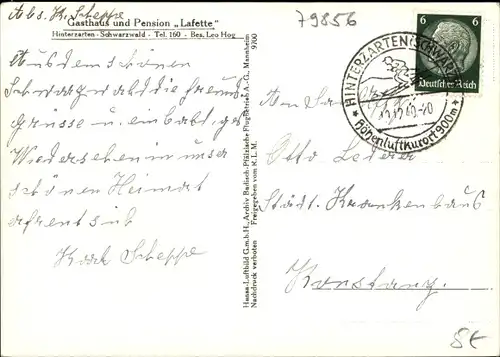 Abs. K. Scheppe
79856
Gasthaus und Pension „Lafette"
Hinterzarten - Schwarzwald - Tel. 160 - Bes. Leo Hog
Aus dem schönen
Schwarzwald die
Grüsse u. ein baldiges
Wiedersehen in unser
schönen Heimat
Karl Scheppe
Hansa-Luftbild G.m.b.H., Archiv Badisch-Pfälzische Flugbetrieb A.-G., Mannheim
9300
Nachdruck verboten Freigegeben vom R.L.M.
6 6
Deutsches Reich
HINTERZARTEN (SCHWARZW)
Höhenluftkurort 900m
An San.
Otto Lederer
Städt. Krankenhaus
Konstanz.
5€